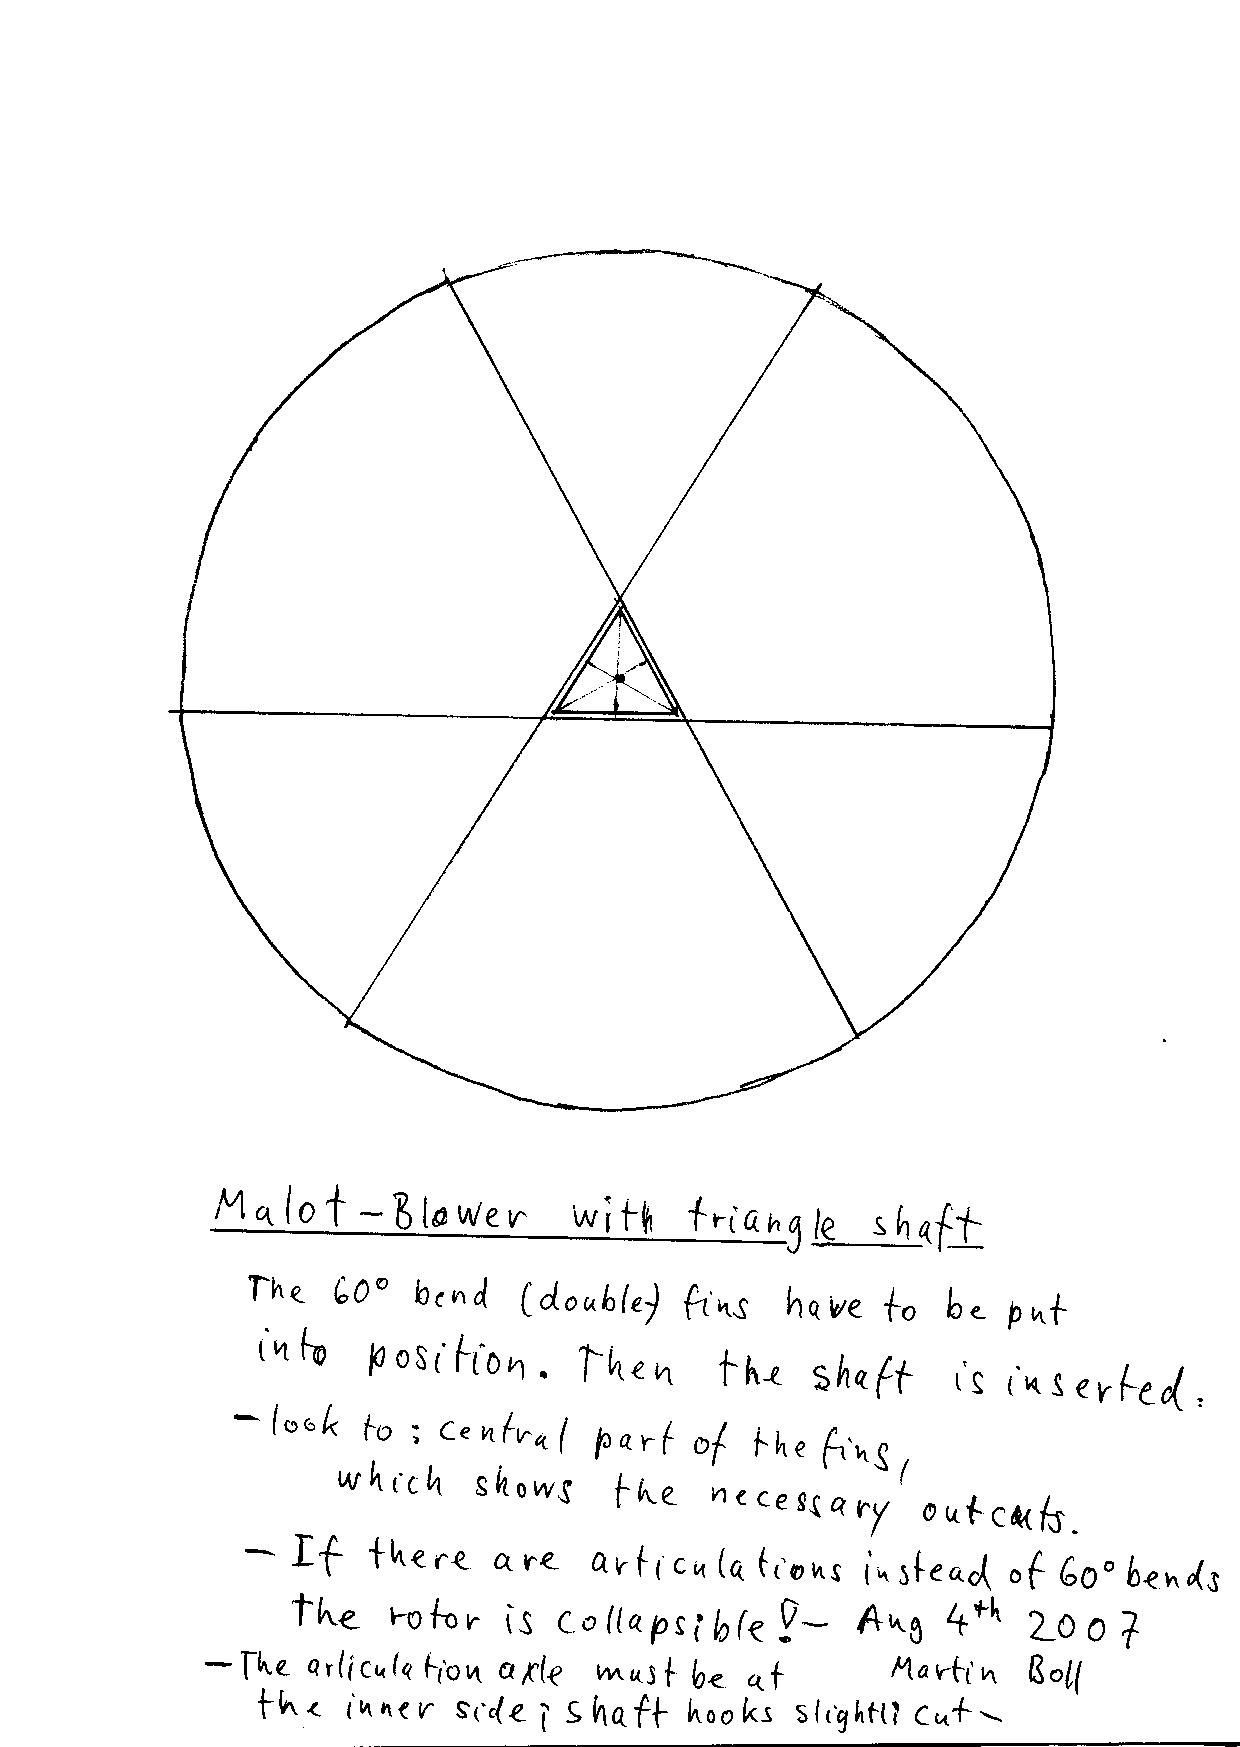 Malot-Blower with triangle shaft
The 60° bend (double) fins have to be put
into position. Then the shaft is inserted.
- look to : central part of the fins,
which shows the necessary outcuts.
- If there are articulations instead of 60° bends
the rotor is collapsible! - Aug 4th 2007
- The articulation axle must be at Martin Boll
the inner side; shaft hooks cut -